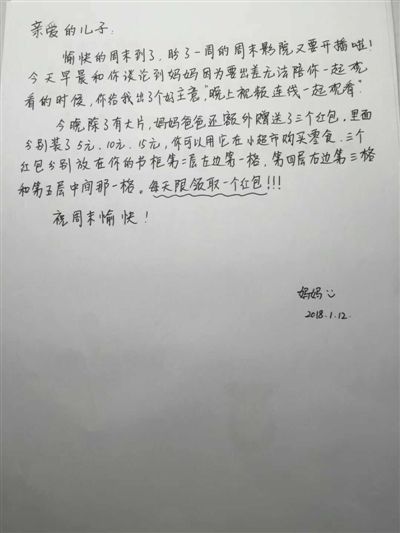 亲爱的儿子:
愉快的周末到了,盼了一周的周末影院又要开播啦!
今天早晨和你谈论到妈妈因为要出差无法陪你一起观
看的时候,你给我出了个好主意,"晚上视频连线一起观看"
今晚除了有大片,妈妈爸爸还额外赠送了三个红包,里面
分别装了5元、10元、15元,你可以用它在小超市购买零食.三个
红包分别放在你的书柜第二层左边第一格、第四层右边第三格
和第五层中间那一格。每天限领取一个红包!!!
祝周末愉快!
妈妈
2018.1.12.